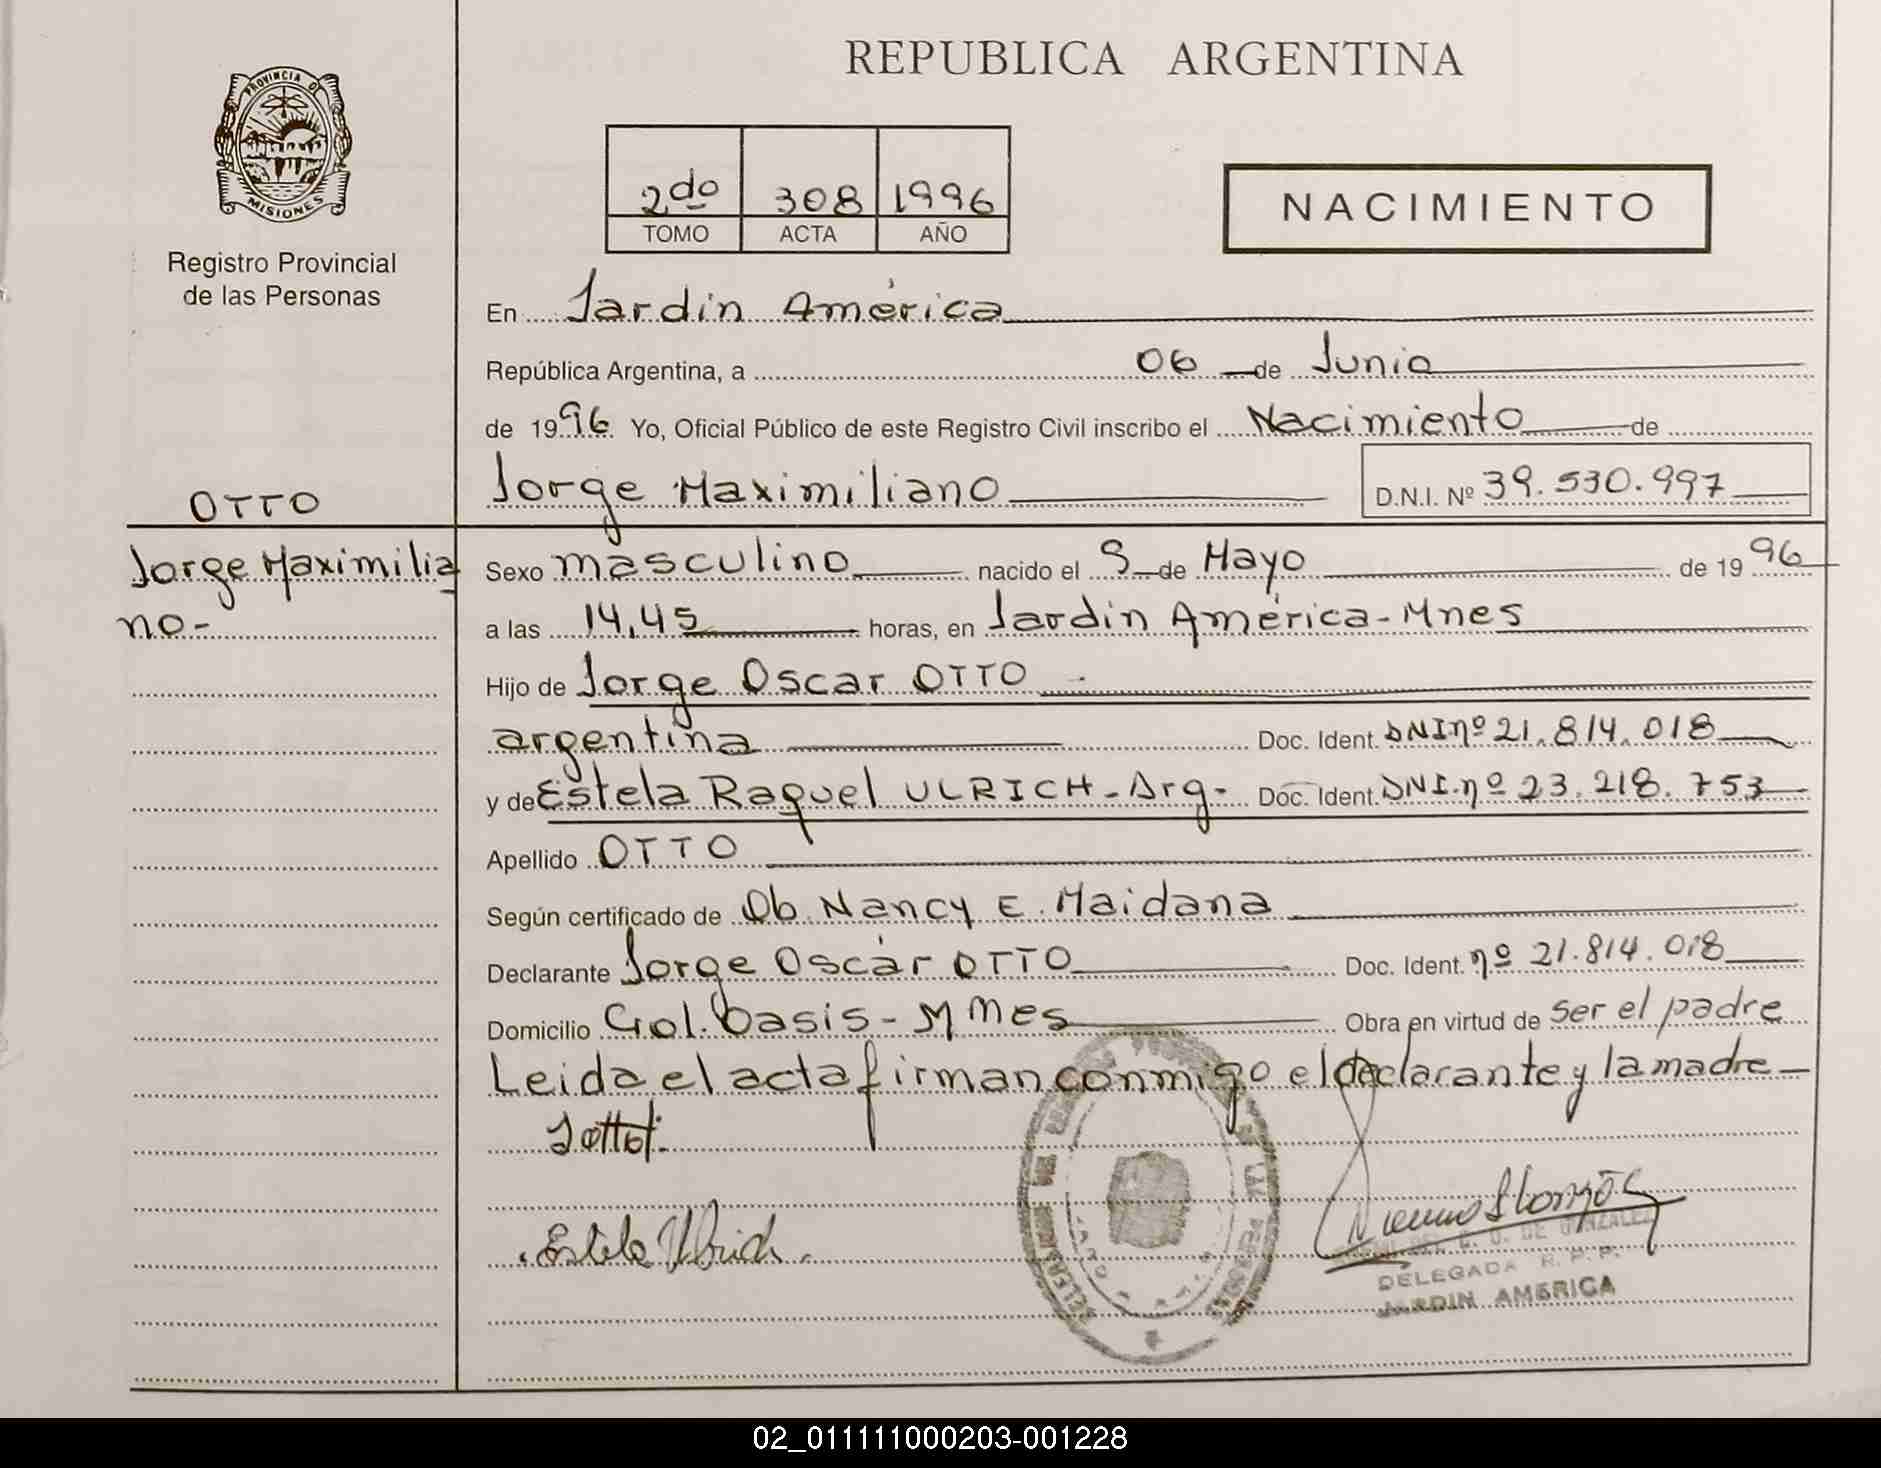 REPUBLICA ARGENTINA
PROVINCIA DE
MISIONES
Registro Provincial
de las Personas
2do 308 1996
TOMO ACTA AÑO
NACIMIENTO
En Jardín América
República Argentina, a 06 de Junio
de 1996 Yo, Oficial Público de este Registro Civil inscribo el Nacimiento de
Jorge Maximiliano D.N.I. Nº 39.530.997
OTTO
Jorge Maximilia
no-
Sexo masculino nacido el 9 de Mayo de 1996
a las 14,45 horas, en Jardín América-Mnes
Hijo de Jorge Oscar OTTO
argentina Doc. Ident. DNI nº 21.814.018
y de Estela Raquel ULRICH-Arg- Doc. Ident. DNI. nº 23.218.753
Apellido OTTO
Según certificado de Ob. Nancy E. Maidana
Declarante Jorge Oscar OTTO Doc. Ident. nº 21.814.018
Domicilio Col. Oasis - Mnes Obra en virtud de ser el padre
Leida el acta firman conmigo el declarante y la madre-
Estela Ulrich
DE GONZALEZ
DELEGADA R.P.P.
JARDIN AMERICA
02_011111000203-001228